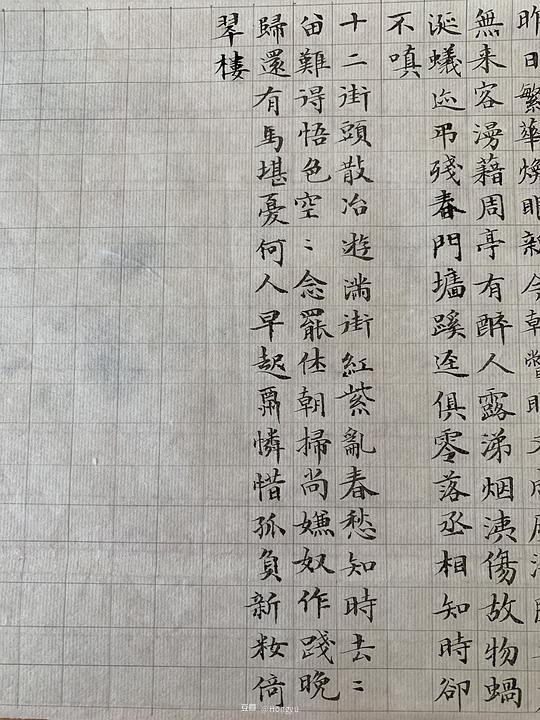 昨日繁華煥眼新今朝瞥眼又成
無来容漫藉周亭有醉人露涕烟洟傷故物蝸
涎蟻迹弔殘春門墻蹊逕俱零落丞相知時卻
不嗔
十二街頭散冶遊滿街紅紫亂春愁知時去〻
畄難得悟色空〻念罷休朝掃尚嫌奴作踐晚
歸還有馬堪憂何人早起憐惜孤負新籹倚
翠樓
豆瓣 @Hongyu